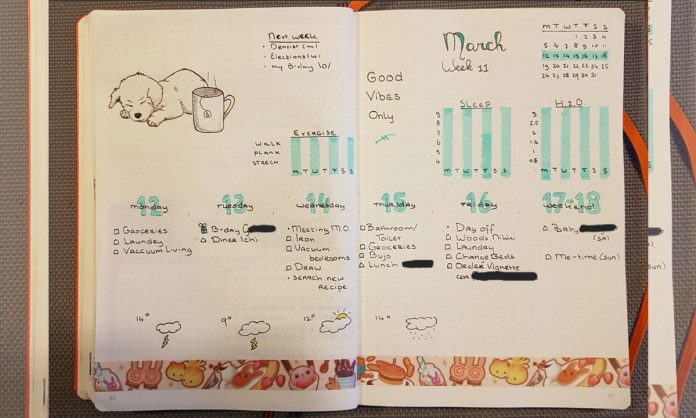 Next week
• Dentist (m)
• Elections (w)
• my B-day 10/
March
Week 11
M T W T F S S
1 2 3 4
5 6 7 8 9 10 11
12 13 14 15 16 17 18
19 20 21 22 23 24 25
26 27 28 29 30 31
Good
Vibes
Only
Exercise
walk
plank
stretch
M T W T F S S
Sleep
9
8
7
6
5
4
M T W T F S S
H2O
3
2.5
2
1.5
1
0.5
M T W T F S S
12 monday
Groceries
Laundry
Vaccuum Living
13 tuesday
B-day
Diner Ichi
14 wednesday
• Meeting M.O.
Iron
Vacuum
bedrooms
Draw
• Search new
recipe
15 thursday
Bathroom/
Toilet
Groceries
Bujo
Lunch
16 friday
• Day off
Woods Nikki
Laundry
Change Beds
Order Vignette
17-18 weekend
Baby
(sa)
Me-time (sun)
14°
9°
12°
14°